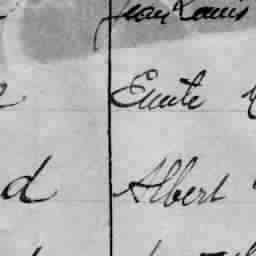 Jean Louis
Emile
d Albert